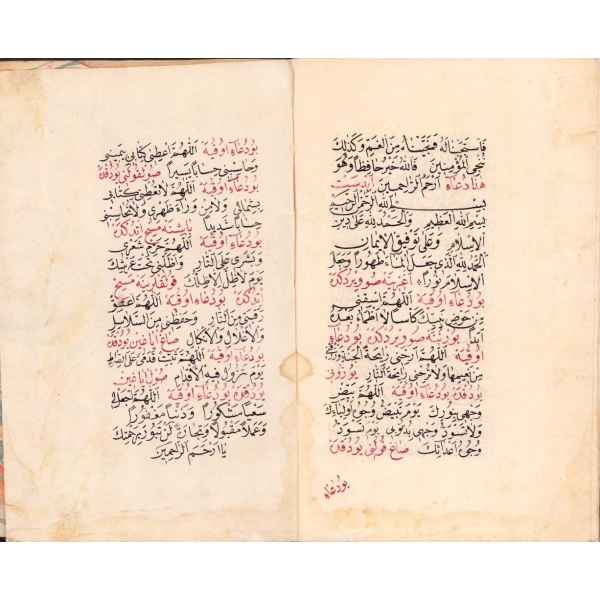 فَاسْتَجَبْنَا لَهُ فَنَجَّيْنَاهُ مِنَ الْغَمِّ وَكَذٰلِكَ
نُنْجِي الْمُؤْمِنِينَ فَاللّٰهُ خَيْرٌ حَافِظًا وَهُوَ
أَرْحَمُ الرَّاحِمِينَ آبدست
بسم الله الرَّحْمٰنِ الرَّحِيمِ
بِسْمِ اللّٰهِ الْعَظِيمِ وَالْحَمْدُ لِلّٰهِ عَلَى دِينِ
الْإِسْلَامِ وَعَلَى تَوْفِيقِ الْإِيمَانِ
الْحَمْدُ لِلّٰهِ الَّذِي جَعَلَ الْمَاءَ طَهُورًا وَجَعَلَ
الْإِسْلَامَ نُورًا اغزينه صو ويردكن
بو دعاء اوقيه اللّٰهُمَّ اسْقِنِي
مِنْ حَوْضِ نَبِيِّكَ كَأْسًا لَا أَظْمَأُ بَعْدَهُ
أَبَدًا بورنينه صو ويردكن بو دعاء
اوقيه اللّٰهُمَّ أَرِحْنِي رَائِحَةَ الْجَنَّةِ وَارْزُقْنِي
مِنْ نَعِيمِهَا وَلَا تُرِحْنِي رَائِحَةَ النَّارِ يوزين
يودقده بو دعاء اوقيه اللّٰهُمَّ بَيِّضْ
وَجْهِي بِنُورِكَ يَوْمَ تَبْيَضُّ وُجُوهُ أَوْلِيَائِكَ
وَلَا تُسَوِّدْ وَجْهِي بِذُنُوبِي يَوْمَ تَسْوَدُّ
وُجُوهُ أَعْدَائِكَ صاغ قولنى يودقده
بو دعاء
بو دعاء اوقيه اللّٰهُمَّ أَعْطِنِي كِتَابِي بِيَمِينِي
وَحَاسِبْنِي حِسَابًا يَسِيرًا صول قولنى يودقده
بو دعاء اوقيه اللّٰهُمَّ لَا تُعْطِنِي كِتَابِي
بِشِمَالِي وَلَا مِنْ وَرَاءِ ظَهْرِي وَلَا تُحَاسِبْنِي
حِسَابًا شَدِيدًا باشنه مسح ايتدكده
بو دعاء اوقيه اللّٰهُمَّ حَرِّمْ شَعْرِي
وَبَشَرِي عَلَى النَّارِ وَأَظِلَّنِي تَحْتَ عَرْشِكَ
يَوْمَ لَا ظِلَّ إِلَّا ظِلُّكَ قولقلرينه مسح
ايتدكده بو دعاء اوقيه اللّٰهُمَّ أَعْتِقْ
رَقَبَتِي مِنَ النَّارِ وَحَفِّظْنِي مِنَ السَّلَاسِلِ
وَالْأَغْلَالِ وَالْأَنْكَالِ صاغ اياغين يودقده
بو دعاء اوقيه اللّٰهُمَّ ثَبِّتْ قَدَمَيَّ عَلَى الصِّرَاطِ
يَوْمَ تَزُولُ فِيهِ الْأَقْدَامُ صول اياغين
يودقده بو دعاء اوقيه اللّٰهُمَّ اجْعَلْ لِي
سَعْيًا مَشْكُورًا وَذَنْبًا مَغْفُورًا
وَعَمَلًا مَقْبُولًا وَتِجَارَةً لَنْ تَبُورَ بِرَحْمَتِكَ
يَا أَرْحَمَ الرَّاحِمِينَ